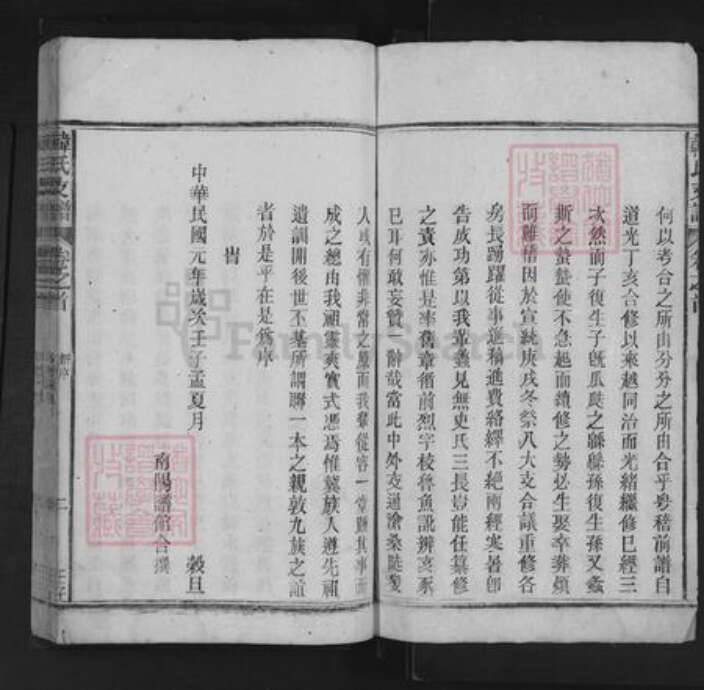 何以考合之所由分分之所由合乎粤稽前譜自
道光丁亥合修以來越同治而光緒繼修已經三
次然而子復生子旣瓜瓞之緜緜孫復生孫又螽
斯之蟄蟄使不急起而續修之勢必生娶卒葬頗
而難稽因於宣統庚戌冬祭八大支合議重修各
房長踴躍從事送稿進費絡繹不絕兩經寒暑即
告成功第以我輩義兒無吏氏三長豈能任纂修
之責亦惟是率舊章循前烈字校魯魚訛辨亥豕
已耳何敢妄贊 辭哉當此中外交通滄桑陡變
人或有懼非常之原而我輩從容一堂賸其事而
成之總由我祖靈爽實式憑焉惟冀族人遵先祖
遺訓開後世丕基所謂聯一本之親敦九族之誼
者於是乎在是爲序
旹
中華民國元年歲次壬子孟夏月 穀旦
南陽譜館合撰
韓氏支譜 卷之首 新序 二
FamilySearch